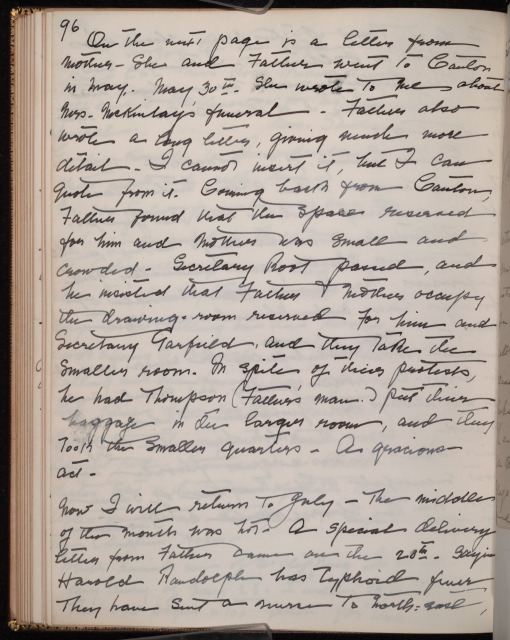 96
On the next page is a letter from
Mother - She and Father went to Canton
in May. May 30th. She wrote to me about
Mrs. McKinley's funeral - Father also
wrote a long letter, giving much more
detail - I cannot insert it, but I can
quote from it. Coming back from Canton,
Father found that the space reserved
for him and Mother was small and
crowded - Secretary Root passed, and
he insisted that Father & Mother occupy
the drawing-room reserved for him and
Secretary Garfield, and they take the
smaller room. In spite of their protests,
he had Thompson (Father's man.) put their
baggage in the larger room, and they
took the smaller quarters - A gracious
act -
Now I will return to July - The middle
of the month was hot - A special delivery
letter from Father came on the 20th. Saying
Harold Randolph has typhoid fever
They have sent a nurse to North-east,